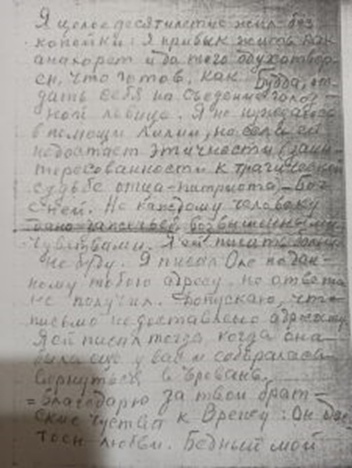 Я целое десятилетие жил без
копейки: Я привык жить как
анахорет и до того одухотвор-
ен, что готов, как Будда, от-
дать себя на съедение голод-
ной львице. Я не нуждаюсь
в помощи Лилии, но если ей
недостает этичности и заин-
тересованности к трагической
судьбе отца-патриота – Бог
с ней. Не каждому человеку
дано жить возвышенными
чувствами. Я ей писать больше
не буду. Я писал Оле по дан-
ному тобою адресу, но ответа
не получил. Допускаю, что
письмо недоставлено адресату
Я ей писал тогда, когда она
была еще у вас и собиралась
вернуться в Ереван.
= Благодарю за твои брат-
ские чувства к Врежу: Он дос-
тоин любви. Бедный мой